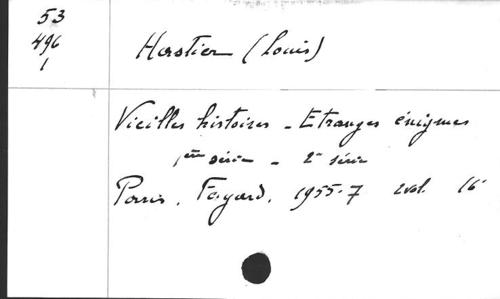 53
496
1
Hastier (Louis)
Vieilles histoires - Etranges énigmes
1ère série - 2e série
Paris, Fayard, 1955-7 2vol. 16°